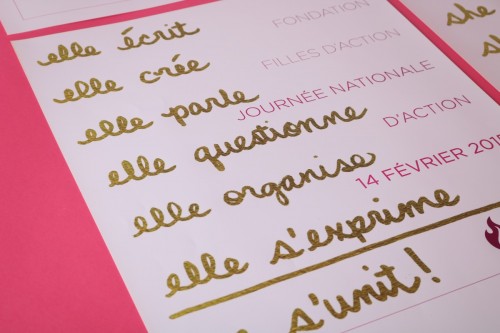 elle écrit
elle crée
elle parle
elle questionne
elle organise
elle s'exprime
s'unit!
FONDATION
FILLES D'ACTION
JOURNÉE NATIONALE
D'ACTION
14 FÉVRIER 201
she